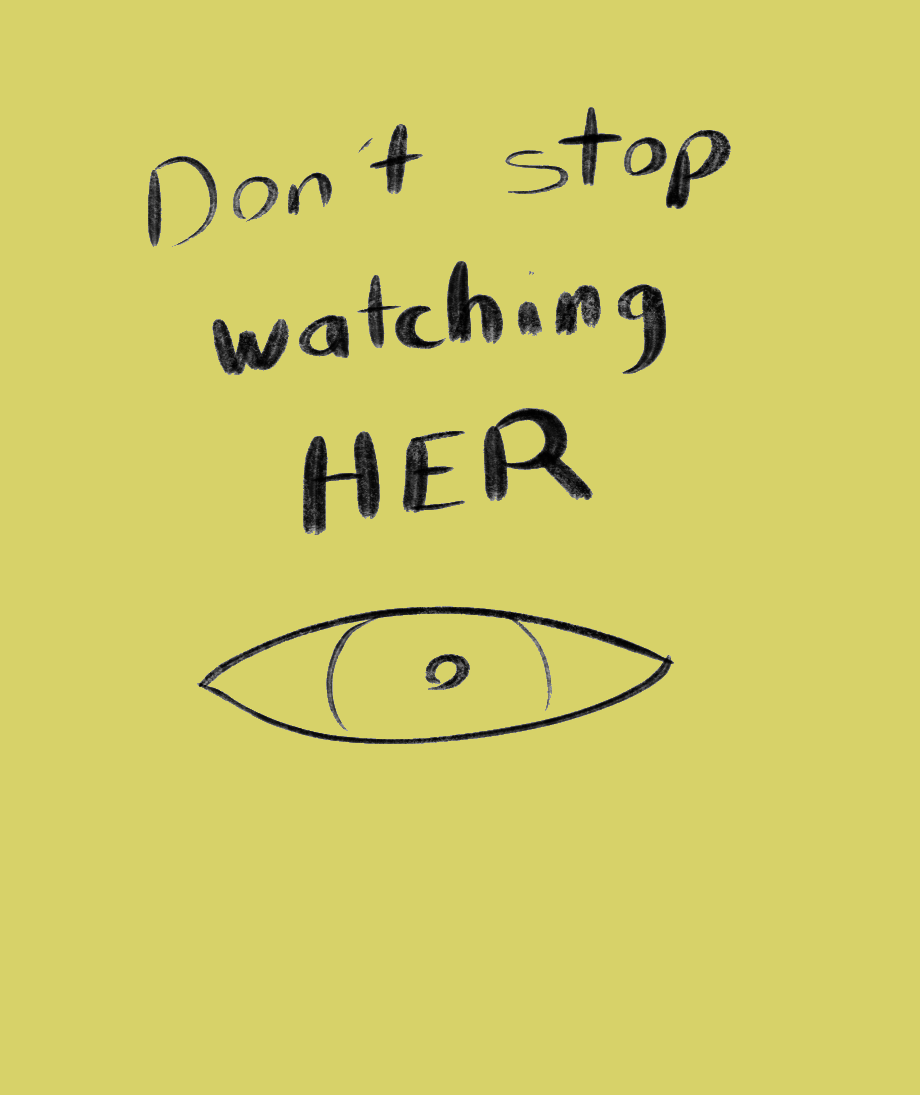 Don't stop
watching
HER